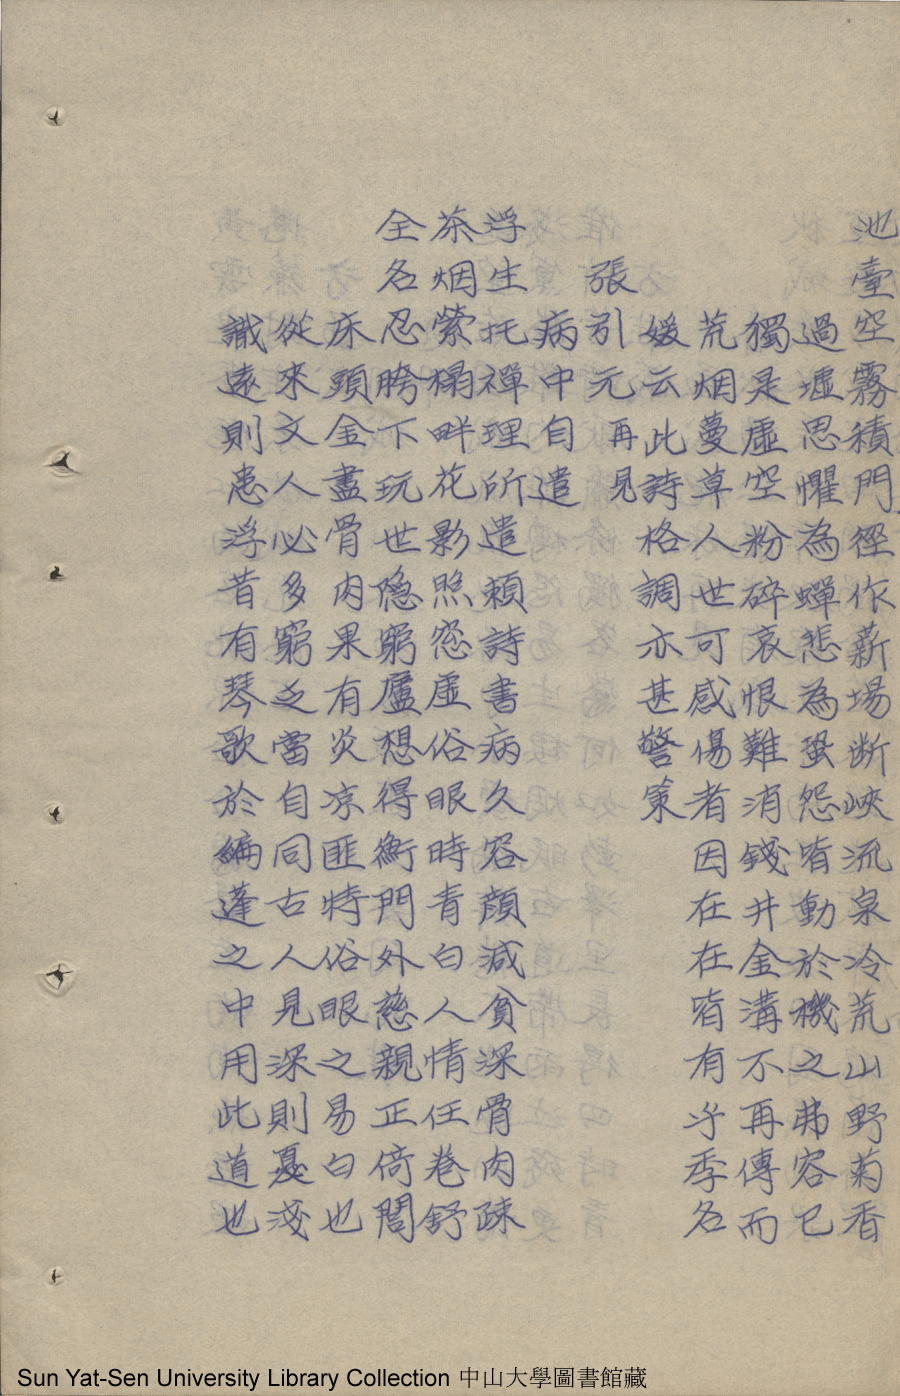 池臺空霧積門徑作薪場斷峽流泉冷荒山野菊香
過墟思懼為蟬悲為蛩怨皆動於機之弗容已
獨是虛空粉碎哀恨難消錢井金溝不再傳而
荒烟蔓草人世可感傷者因在在皆有乎季名
媛云此詩格調亦甚警策
張引元 再見
病中自遣
浮生托禪理所遣賴詩書病久容顏減貧深骨肉疎
茶烟縈榻畔花影照窓虛俗眼時青白人情任卷舒
全名忍胯下玩世隐窮廬想得衡門外慈親正倚閭
床頭金盡骨肉果有炎凉匪特俗眼之易白也
從來文人必多窮乏當自同古人見深則憂淺
識遠則患浮昔有琴歌於編蓬之中用此道也
Sun Yat-Sen University Library Collection 中山大學圖書館藏